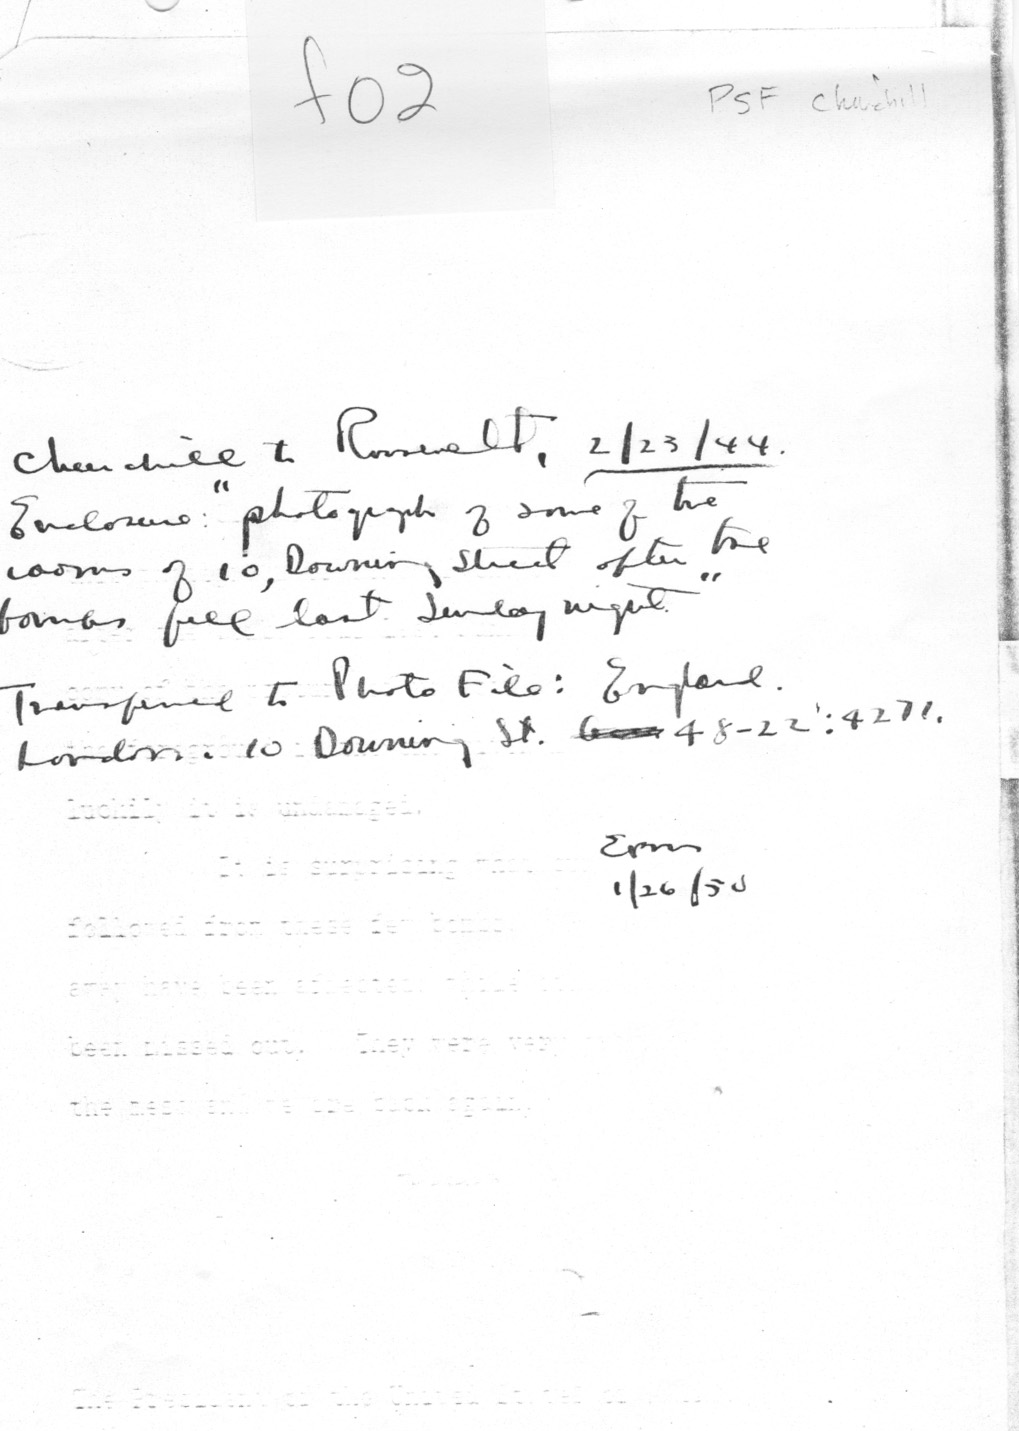 f02
PSF Churchill
Churchill to Roosevelt, 2/23/44.
Enclosure: "photograph of some of the
rooms of 10, Downing Street after the
bombs fell last Sunday night."
Transferred to Photo File: England.
London. 10 Downing St. 48-22:4271.
luckily it is undamaged.
It is surprising
followed from these few bombs
away have been
been missed out. They were very
the mess and we are again,
The President of the United States of